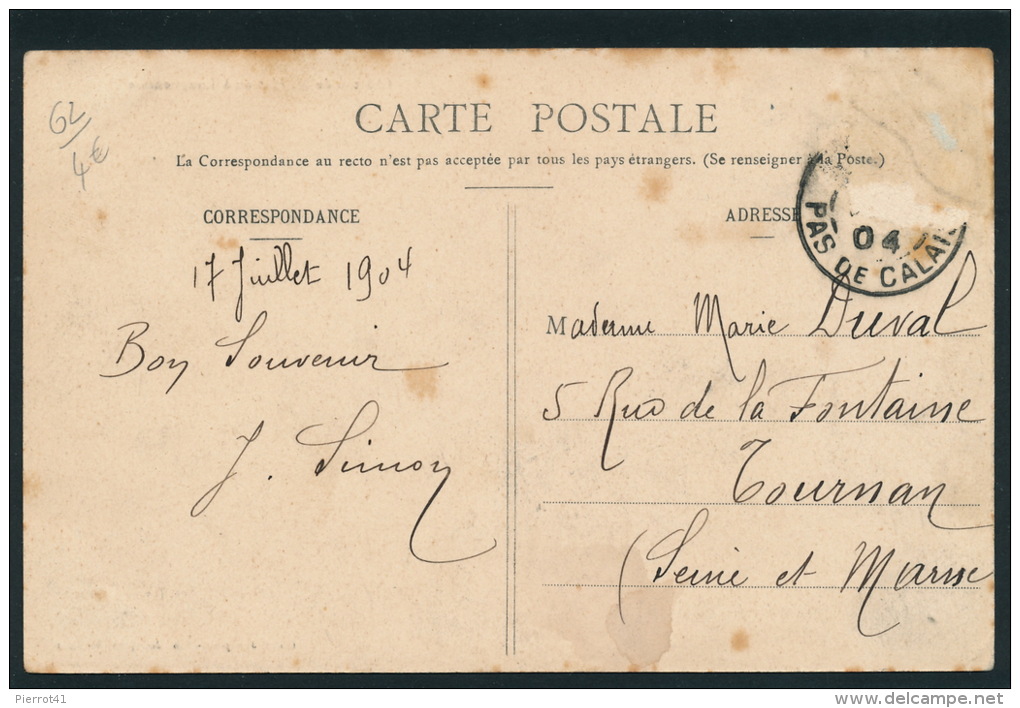 62
4€
CARTE POSTALE
La Correspondance au recto n'est pas acceptée par tous les pays étrangers. (Se renseigner à la Poste.)
CORRESPONDANCE
17 Juillet 1904
Bon Souvenir
J. Simon
ADRESSE
04
PAS DE CALAIS
Madame Marie Duval
5 Rue de la Fontaine
Tournan
(Seine et Marne
Pierrot41
www.delcampe.net